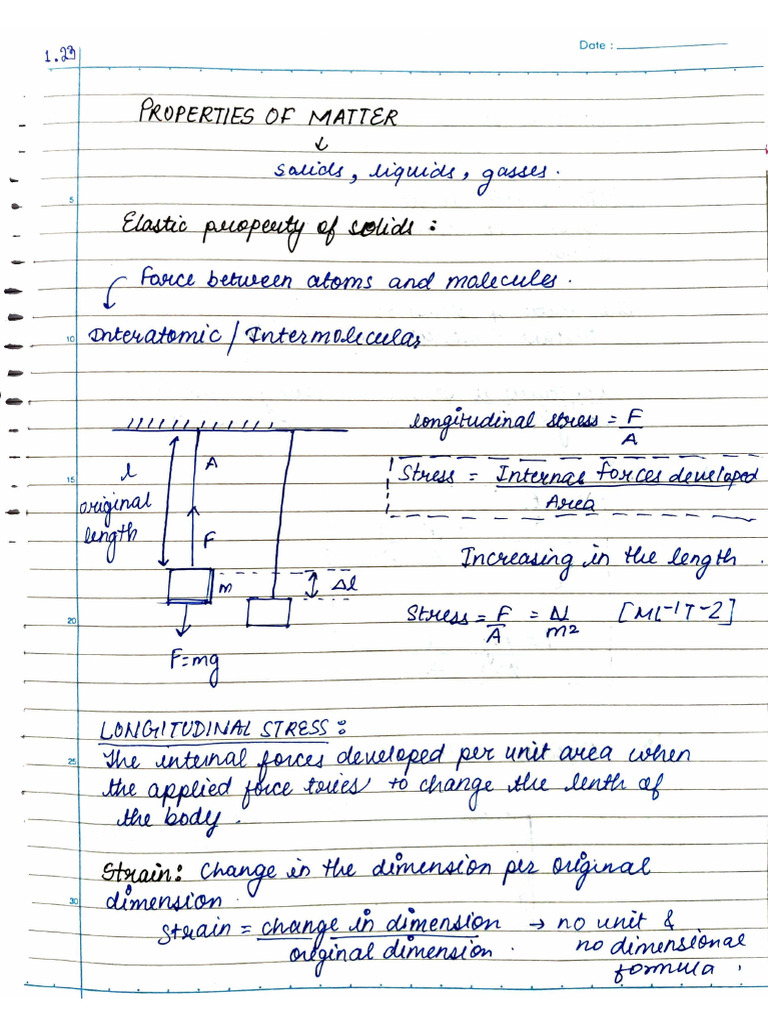 Date :
1.23
PROPERTIES OF MATTER
↓
solids, liquids, gasses.
5
Elastic property of solids :
Force between atoms and molecules.
10
Interatomic / Intermolecular
longitudinal stress = F/A
l
original
length
A
F
15
Stress = Internal forces developed
Area
Increasing in the length.
m
Δl
20
Stress = F/A = N/m2 [ML-1T-2]
F=mg
LONGITUDINAL STRESS :
25
The internal forces developed per unit area when
the applied force tries to change the lenth of
the body.
Strain: Change in the dimension per original
30
dimension.
Strain = change in dimension → no unit &
original dimension. no dimensional
formula.